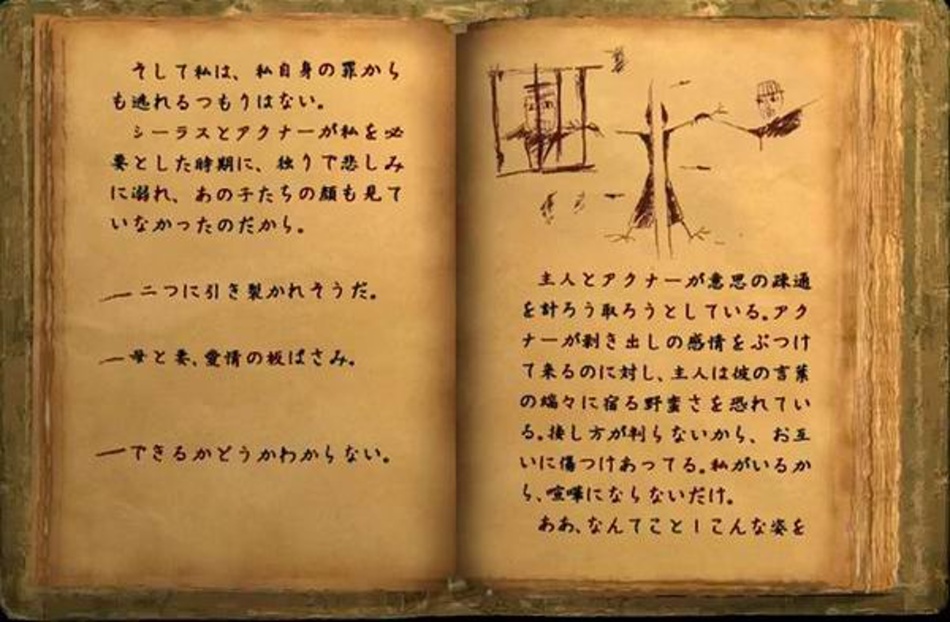 そして私は、私自身の罪から
も逃れるつもりはない。
シーラスとアクナーが私を必
要とした時期に、独りで悲しみ
に溺れ、あの子たちの顔も見て
いなかったのだから。
—二つに引き裂かれそうだ。
—母と妻、愛情の板ばさみ。
—できるかどうかわからない。
主人とアクナーが意思の疎通
を計ろう取ろうとしている。アク
ナーが剥き出しの感情をぶつけ
て来るのに対し、主人は彼の言葉
の端々に宿る野蛮さを恐れてい
る。接し方が判らないから、お互
いに傷つけあってる。私がいるか
ら、喧嘩にならないだけ。
ああ、なんてこと！こんな姿を